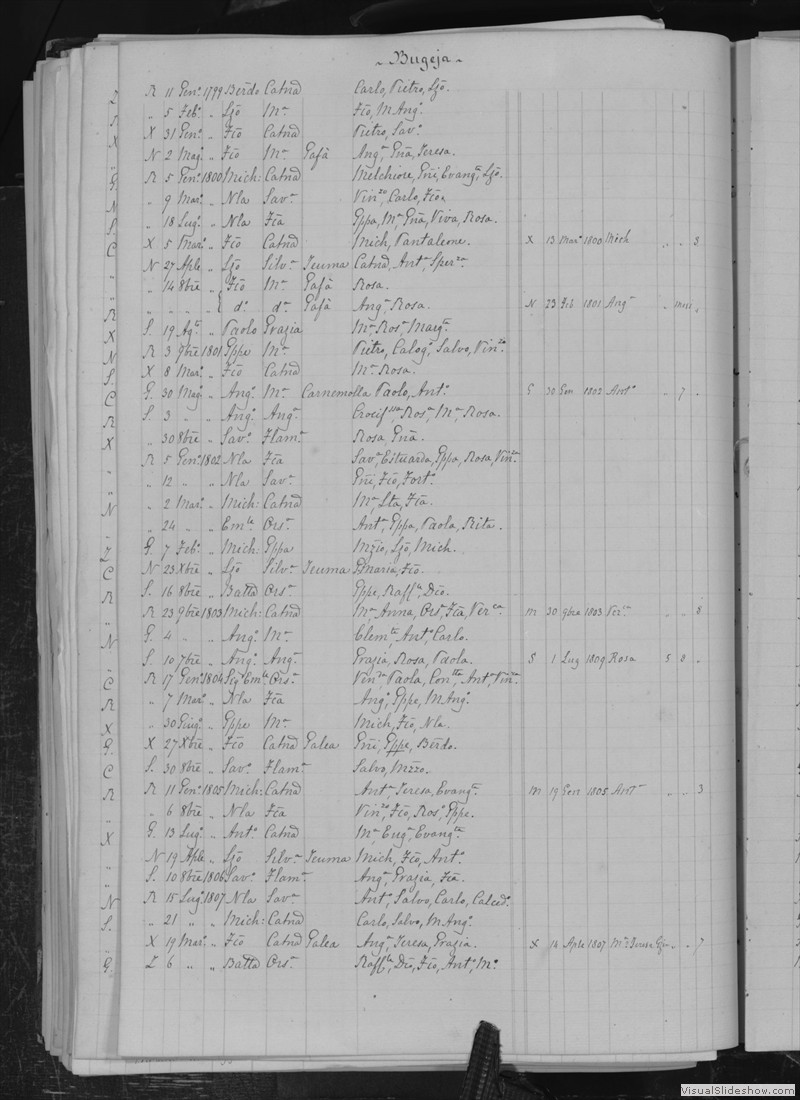 ~ Bugeja ~
R 11 Genº 1799 Berdo Catnd Carlo, Pietro, Ljo.
" 5 Febº " Ljo Mª Fio, M Angª
X 31 Genº " Fio Catnd Pietro, Savº
N 2 Magº " Fio Mª Gafà Angª, Gna, Teresa.
R 5 Genº 1800 Mich: Catnd Melchiore, Gni, Evangta, Ljo.
" 9 Marº " Nla Savª Vinzo, Carlo, Fioa
" 18 Lugº " Nla Fia Gppa, Mª, Gna, Viva, Rosa.
X 5 Marº " Fio Catnd Mich, Pantaleone. X 13 Marº 1800 Mich " " 8
N 27 Aple " Ljo Silvª Teuma Catnd, Antª, Sperza
" 14 8bre " Fio Mª Gafà Rosa.
" " " " { dº dª Gafà Angª, Rosa. N 23 Feb 1801 Angª " mesi "
S. 19 Agto " Paolo Grazia Mª Rosª, Margta
R 3 9bre 1801 Gppe Mª Pietro, Calogº, Salvo, Vinzo
X 8 Marº " Fio Catnd Mª Rosa.
G. 30 Magº " Angº Mª Carnemolla Paolo, Antº G 30 Gen 1802 Antº " 7 "
S. 3 " " Angº Angª Crocifssa, Rosª, Mª, Rosa.
" 30 8bre " Savº Flamª Rosa, Gna.
R 5 Genº 1802 Nla Fia Savª, Estuarda, Gppa, Rosa, Vinza
" 12 " " Nla Savª Gni, Fio, Fortº
" 2 Marº " Mich: Catnd Mª, Lta, Fia.
" 24 " " Emle Orsª Antª, Gppa, Paola, Rita.
G. 7 Febº " Mich: Gppa Mzio, Ljo, Mich.
N 23 Xbre " Ljo Silvª Teuma Gmaria, Fio.
S. 16 8bre " Batta Orsª Gppe, Raffle, Dio.
R 23 9bre 1803 Mich: Catnd Mª, Anna, Orsª, Fia, Verca M 30 9bre 1803 Verca " " 8
G. 4 " " Angº Mª Clemte, Antº, Carlo.
S. 10 7bre " Angº Angª Grazia, Rosa, Paola. S 1 Lug 1809 Rosa 5 8 "
R 17 Genº 1804 Emle Orsª Vinza, Paola, Contta, Antª, Vinza
" 7 Marº " Nla Fia Angº, Gppe, M Angª
" 30 Giugº " Gppe Mª Mich, Fio, Nla.
X 27 Xbre " Fio Catnd Galea Gni, Gppe, Berdo.
S. 30 8bre " Savº Flamª Salvo, Mzzo.
R 11 Genº 1805 Mich: Catnd Antª, Teresa, Evangta M 19 Gen 1805 Antª " " 3
" 6 8bre " Nla Fia Vinzo, Fio, Rosº, Gppe.
G. 13 Lugº " Antº Catnd Mª, Eugª, Evangta
N 19 Aple " Ljo Silvª Teuma Mich, Fio, Antº
S. 10 8bre 1806 Savº Flamª Angª, Grazia, Fia.
R 15 Lugº 1807 Nla Savª Antº, Salvo, Carlo, Calcedº
" 21 " " Mich: Catnd Carlo, Salvo, M Angº
X 19 Marº " Fio Catnd Galea Angª, Teresa, Grazia. X 14 Aple 1807 Mª Teresa " " 7
L 6 " " Batta Orsª Raffle, Dio, Fio, Antº, Mº
VisualSlideshow.com